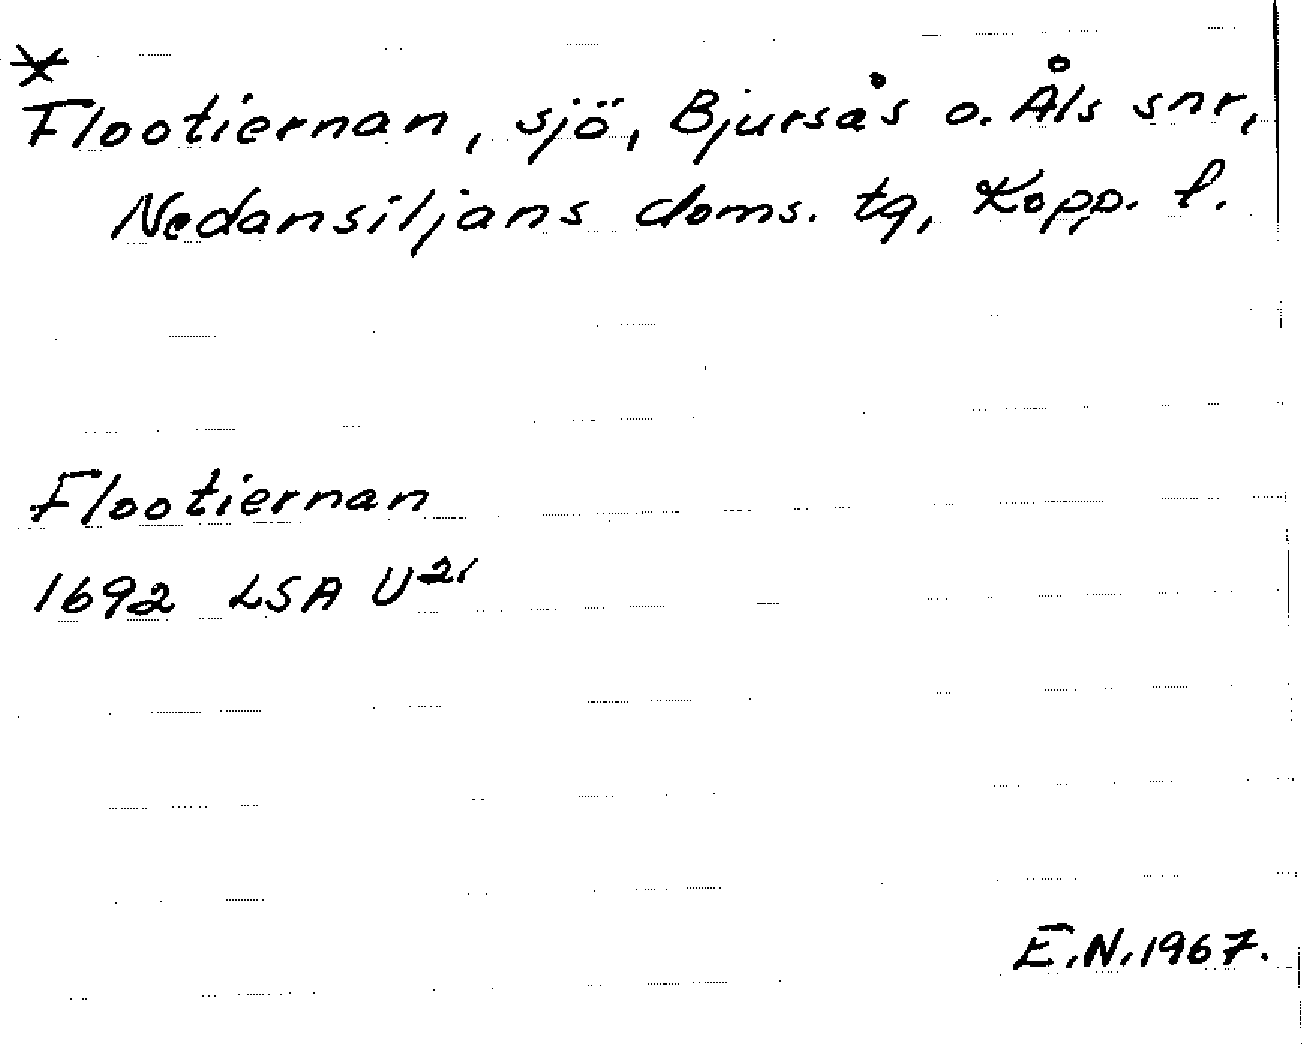 *
Flootiernan, sjö, Bjursås o. Åls snr,
Nedansiljans doms. tg, Kopp. l.
Flootiernan
1692 LSA U²¹
E.N. 1967.